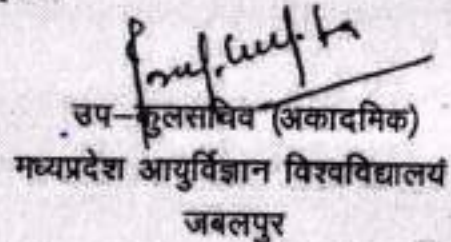 उप-कुलसचिव (अकादमिक)
मध्यप्रदेश आयुर्विज्ञान विश्वविद्यालयं
जबलपुर